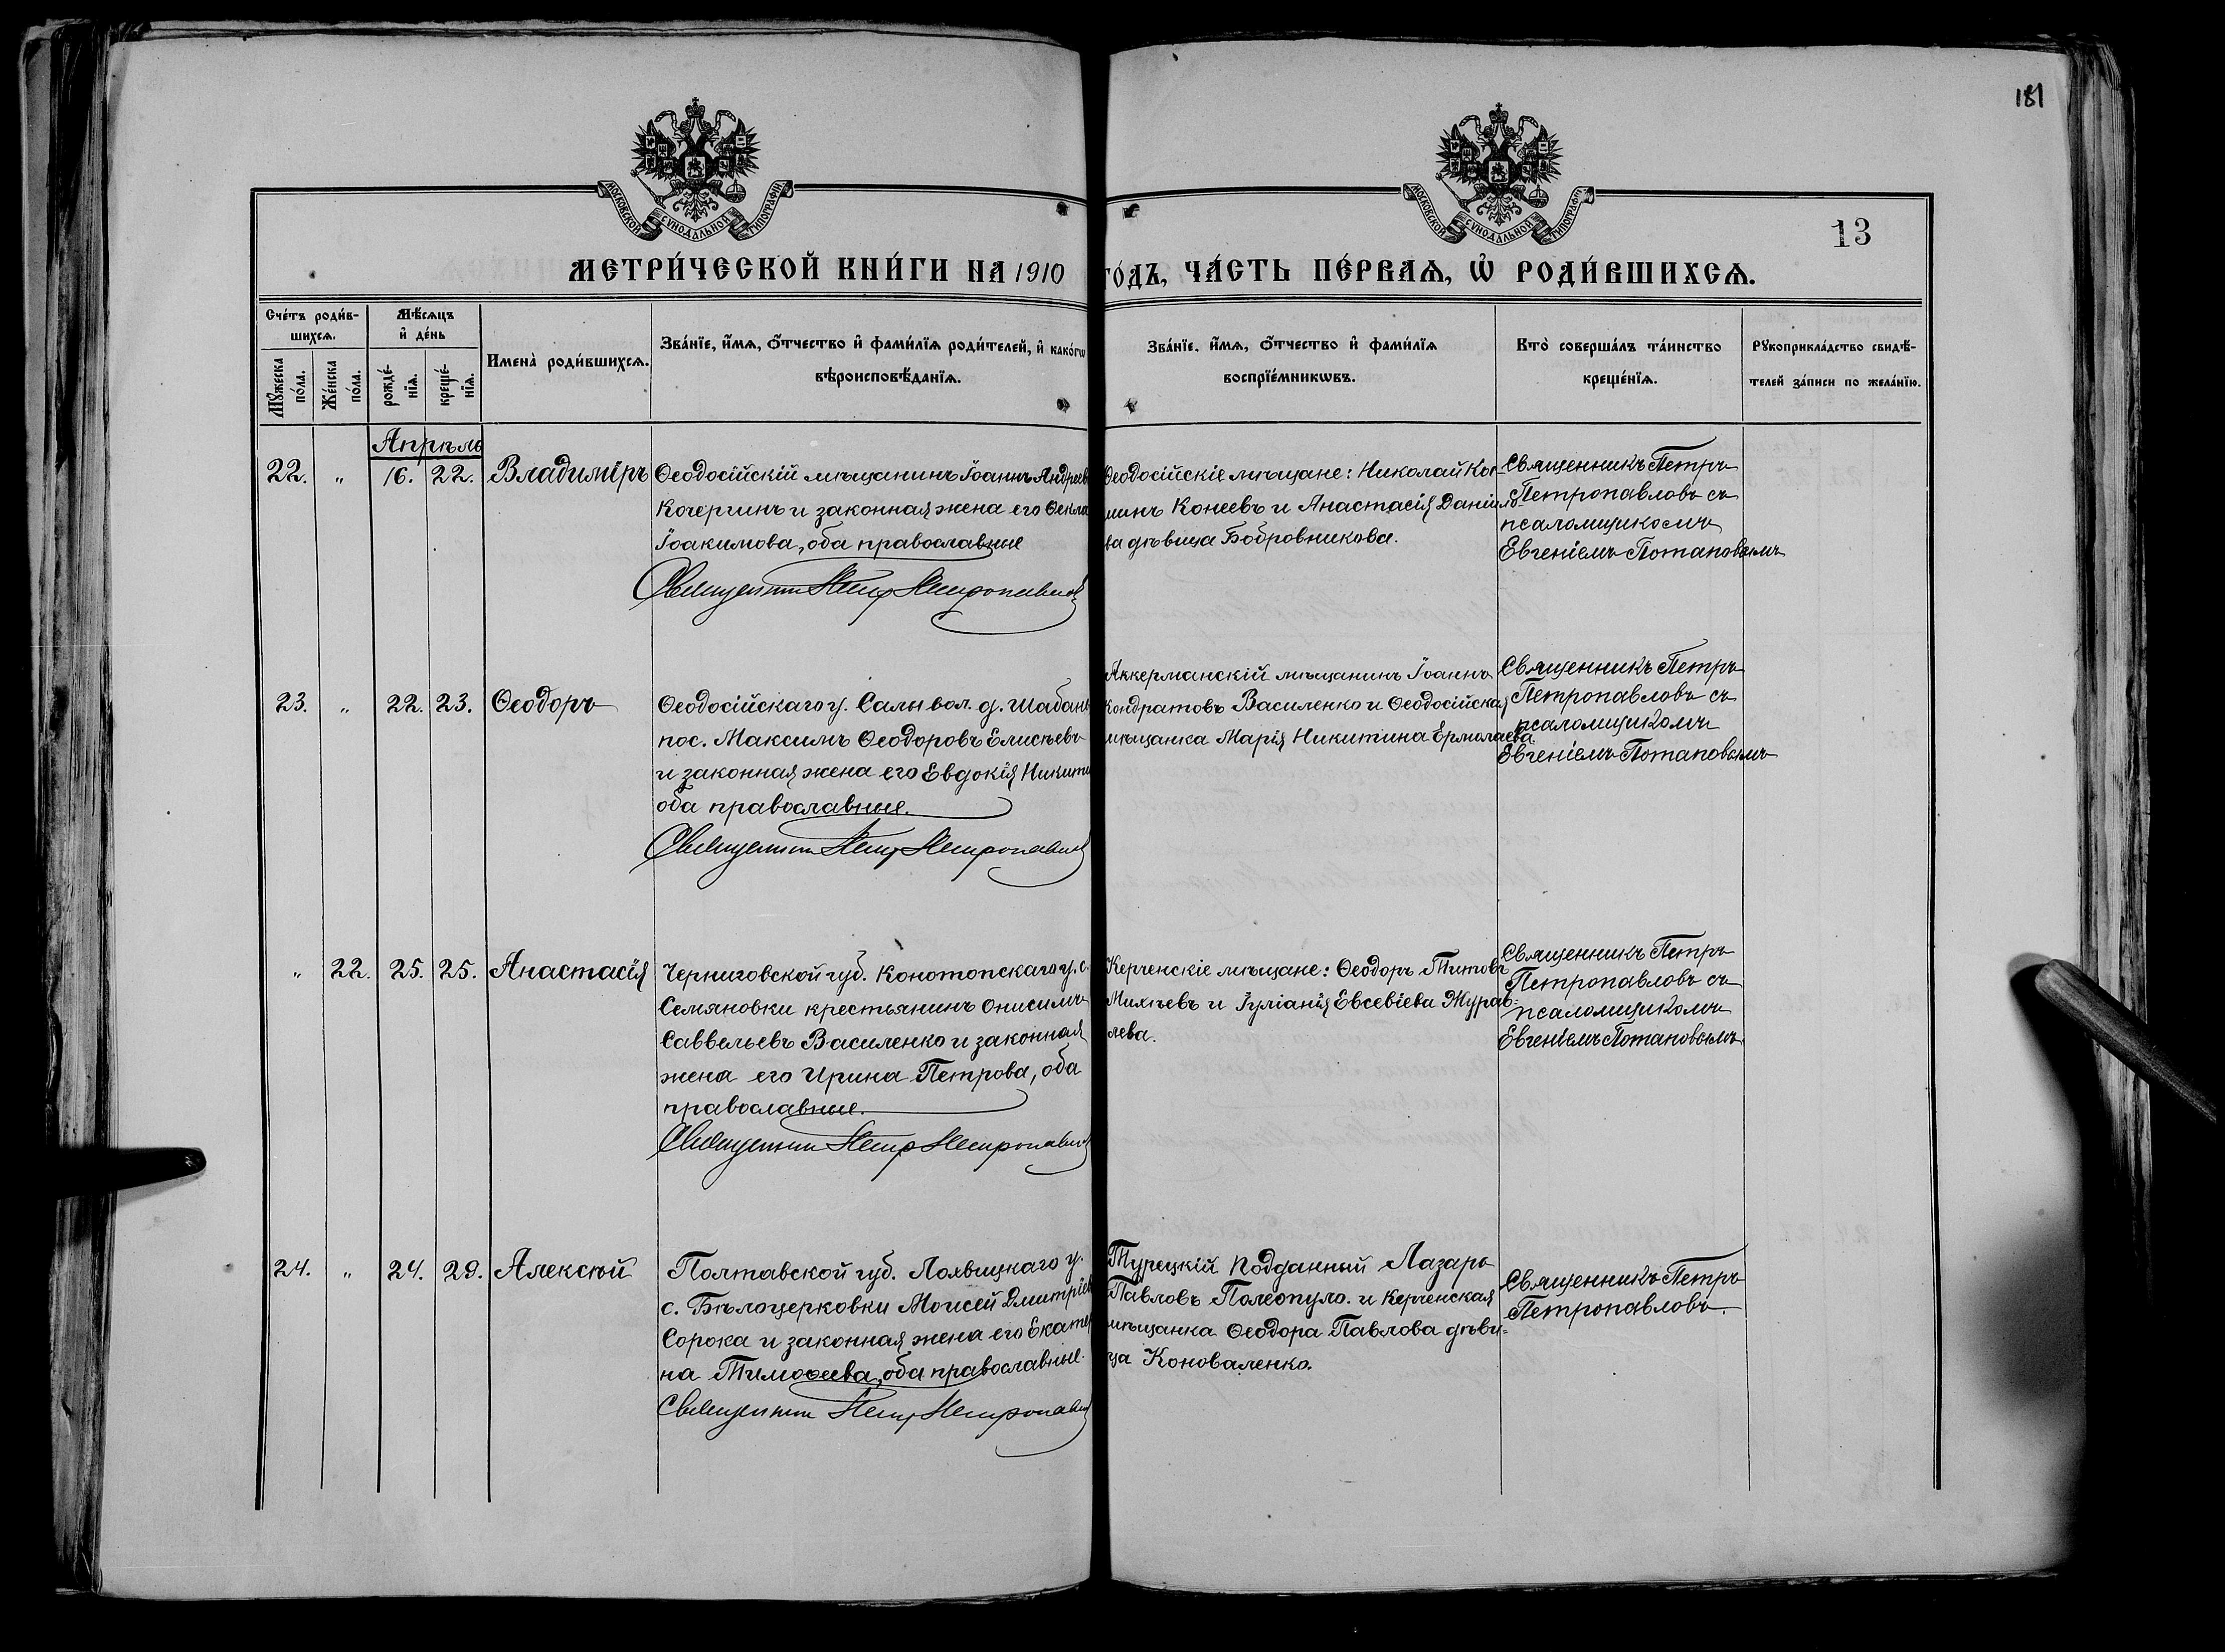 181
МОСКОВСКОЙ СѴНОДАЛЬНОЙ ТИПОГРАФІИ
МОСКОВСКОЙ СѴНОДАЛЬНОЙ ТИПОГРАФІИ
13
МЕТРИ́ЧЕСКОЙ КНИ́ГИ НА 1910 ГО́ДЪ, ЧА́СТЬ ПЕ́РВАѦ, Ѽ РОДИ́ВШИХСѦ.
Сче́тъ роди́в-
шихсѧ.
Мꙋ́жеска по́ла.
Же́нска по́ла.
Мѣ́сѧцъ
и҆ де́нь
рожде́-
нїѧ.
креще́-
нїѧ.
Имена̀ роди́вшихсѧ.
Зва́нїе, и҆́мѧ, ѻ҆́тчество и҆ фами́лїѧ роди́телей, и҆ како́гѡ
вѣроисповѣ́данїѧ.
Зва́нїе, и҆́мѧ, ѻ҆́тчество и҆ фами́лїѧ
воспрїе́мникѡвъ.
Кто̀ соверша́лъ та́инство
креще́нїѧ.
Рꙋкоприкла́дство свидѣ́-
телей за́писи по жела́нїю.
Апрѣль
22. „ 16. 22. Владиміръ
Ѳеодосійскій мѣщанинъ Іоаннъ Андреев
Кочергинъ и законная жена его Ѳекла
Іоакимова, оба православные
Священникъ Петръ Петропавлов
Ѳеодосійскіе мѣщане: Николай Кос-
минъ Конеевъ и Анастасія Даніило-
ва дѣвица Бобровникова.
Священникъ Петръ
Петропавловъ съ
псаломщикомъ
Евгеніемъ Потаповымъ
23. „ 22. 23. Ѳеодоръ
Ѳеодосійскаго у. Салы вол. д. Шабань
пос. Максимъ Ѳеодоровъ Елисѣевъ
и законная жена его Евдокія Никити
оба православные.
Священникъ Петръ Петропавлов
Аккерманскій мѣщанинъ Іоаннъ
Кондратовъ Василенко и Ѳеодосійская
мѣщанка Марія Никитина Ермолаева.
Священникъ Петръ
Петропавловъ съ
псаломщикомъ
Евгеніемъ Потаповымъ
„ 22. 25. 25. Анастасія
Черниговской губ. Конотопскаго у. с.
Семяновки крестьянинъ Онисимъ
Саввельевъ Василенко и законная
жена его Ирина Петрова, оба
православные.
Священникъ Петръ Петропавлов
Керченскіе мѣщане: Ѳеодоръ Титовъ
Михѣевъ и Іуліанія Евсевіева Журав-
лева.
Священникъ Петръ
Петропавловъ съ
псаломщикомъ
Евгеніемъ Потаповымъ.
24. „ 24. 29. Алексѣй
Полтавской губ. Лохвицкаго у.
с. Бѣлоцерковки Моисей Дмитріев
Сорока и законная жена его Екатер
на Тимоѳеева, оба православные.
Священникъ Петръ Петропавлов
Турецкій подданный Лазарь
Павловъ Полеопуло. и Керченская
мѣщанка Ѳеодора Павлова дѣви-
ца Коноваленко.
Священникъ Петръ
Петропавловъ.